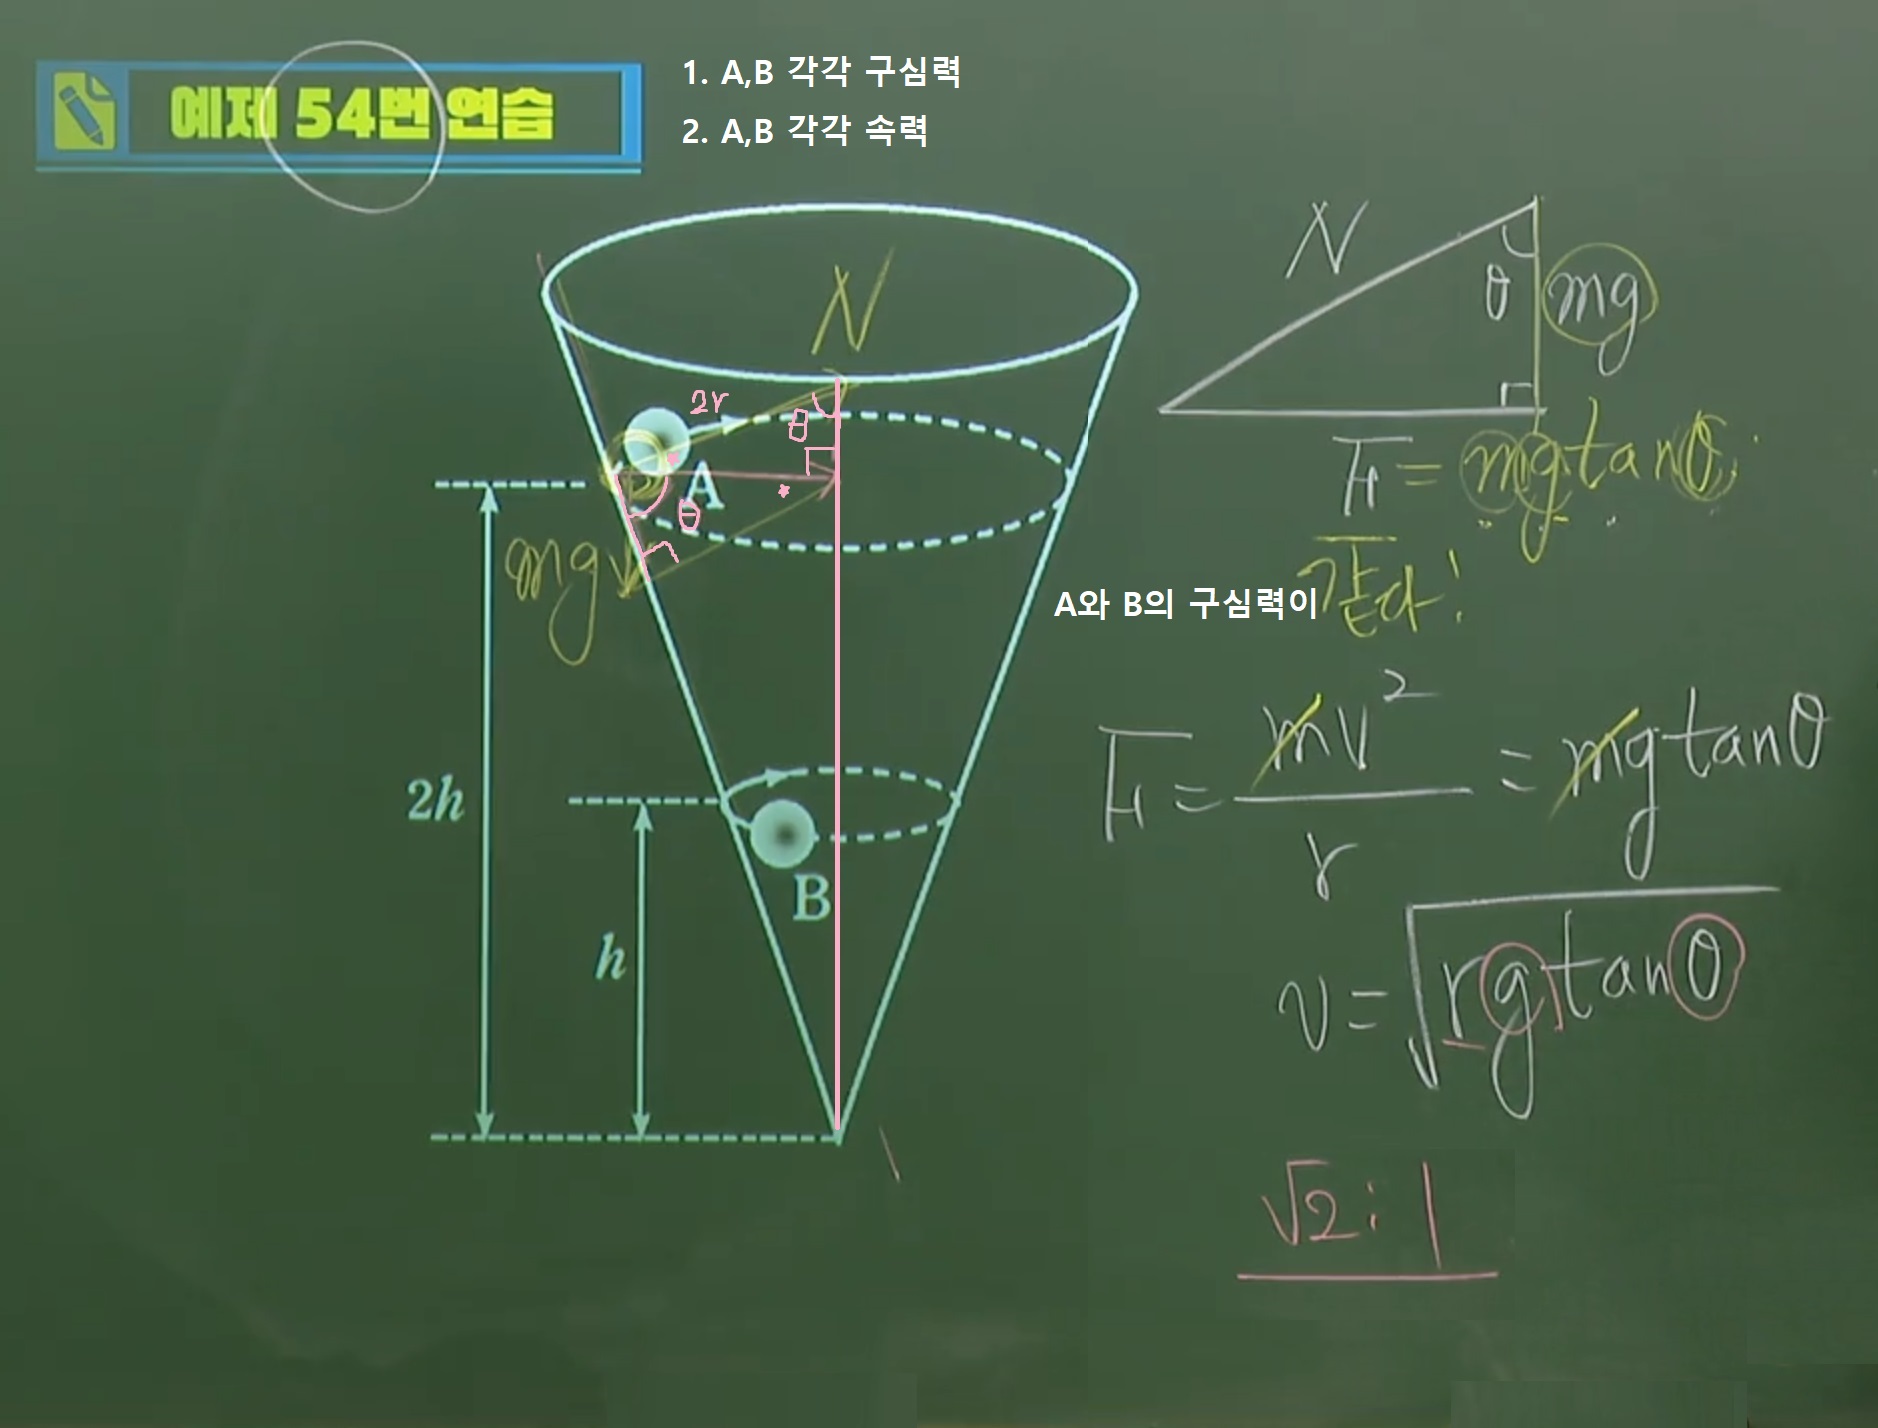 예제 54번 연습
1. A,B 각각 구심력
2. A,B 각각 속력
N
2r
θ
A
θ
mg
2h
h
B
N
θ
mg
F = mg tanθ
A와 B의 구심력이 같다!
F = mv² / r = mg tanθ
v = √rg tanθ
√2 : 1